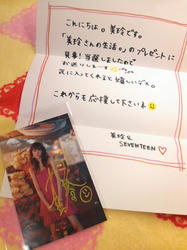 こんにちは。美玲です。
「美玲さんの生活。」のプレゼントに
見事!当選しましたので
お送りします
気に入ってくれると嬉しいデス。
これからも応援して下さいネ
美玲&
SEVENTEEN